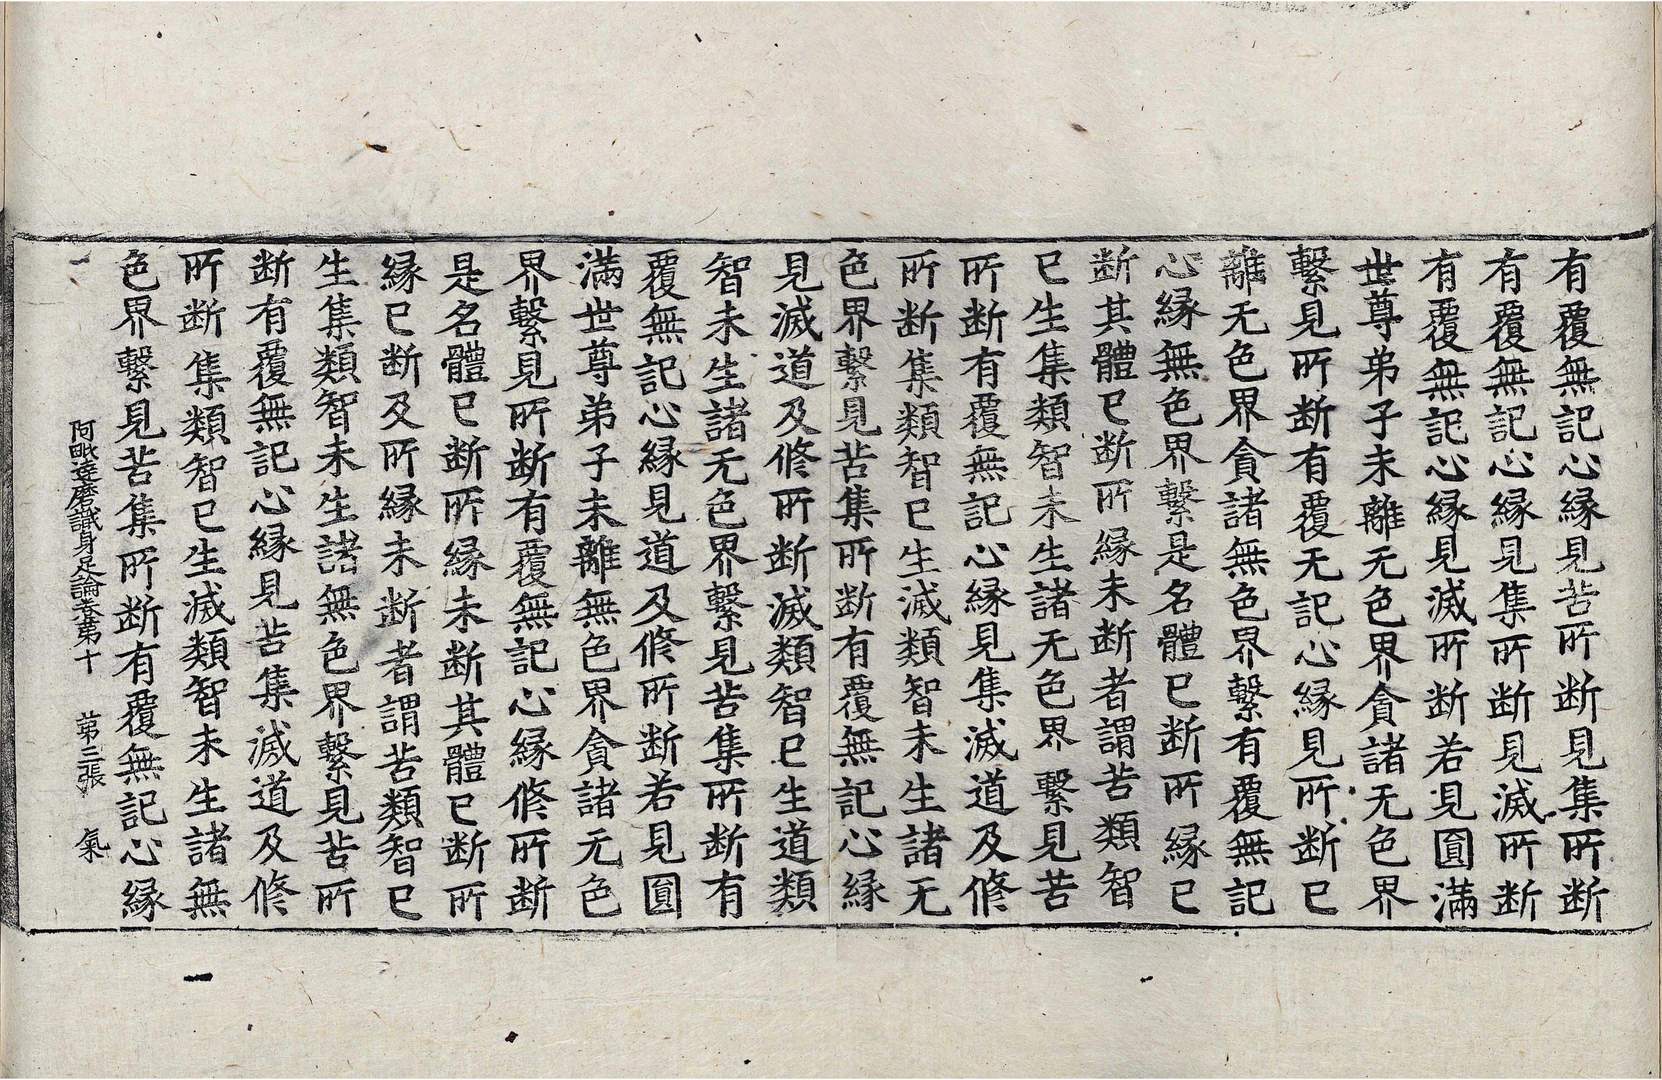 有覆無記心縁見苦所断見集所断
有覆無記心縁見集所断見滅所断
有覆無記心縁見滅所断若見圓滿
世尊弟子未離无色界貪諸无色界
繫見所断有覆无記心縁見所断巳
離无色界貪諸無色界繫有覆無記
心縁無色界繫是名體巳断所縁巳
断其體巳断所縁未断者謂苦類智
巳生集類智未生諸无色界繫見苦
所断有覆無記心縁見集滅道及修
所断集類智巳生滅類智未生諸无
色界繫見苦集所断有覆無記心縁
見滅道及修所断滅類智巳生道類
智未生諸无色界繫見苦集所断有
覆無記心縁見道及修所断若見圓
滿世尊弟子未離無色界貪諸无色
界繫見所断有覆無記心縁修所断
是名體巳断所縁未断其體巳断所
縁巳断及所縁未断者謂苦類智巳
生集類智未生諸無色界繫見苦所
断有覆無記心縁見苦集滅道及修
所断集類智巳生滅類智未生諸無
色界繫見苦集所断有覆無記心縁
阿毗達磨識身足論卷第十 第三張 氣